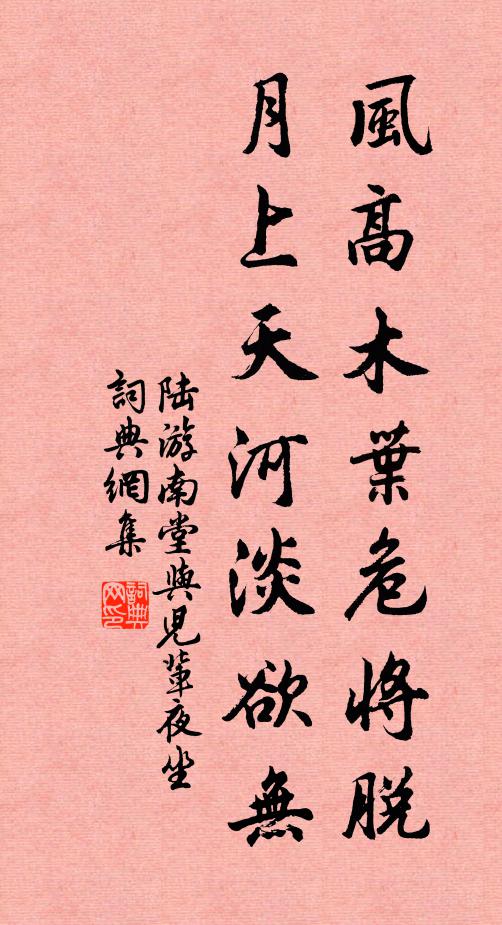 風高木葉危將脫
月上天河淡欲無
陆游南堂與児輩夜坐
詞典網集
詞典
网印